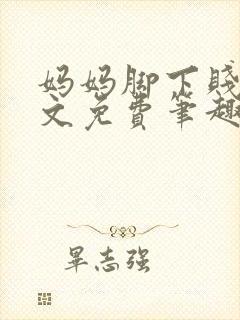 妈妈脚下贱
文免费笔趣
畢志强